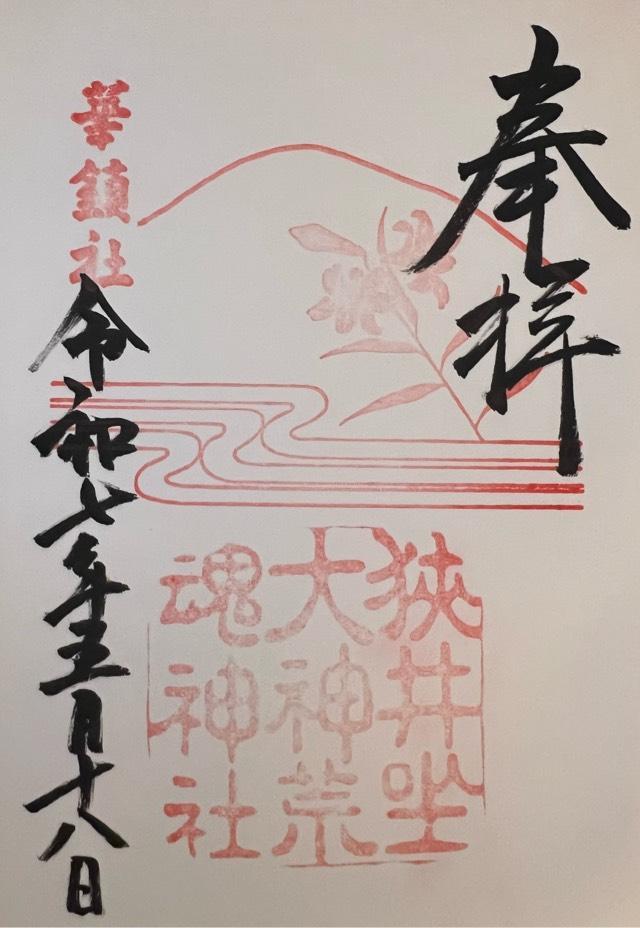 奉拝
狭井坐
大神荒
魂神社
華鎮社
令和七年五月十八日